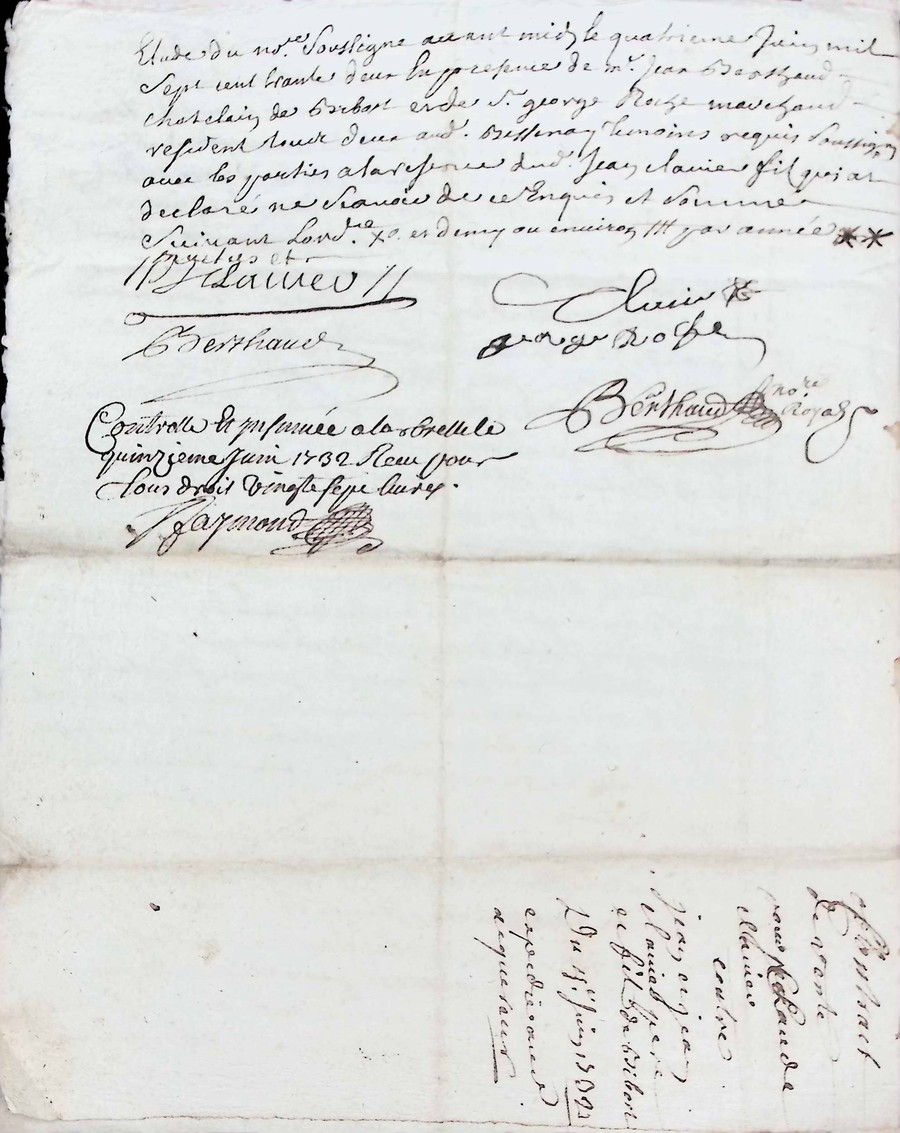 Etude du no.re Soussigne avant midy le quatrieme Juin mil
Sept cent trante deux En presence de m.r Jean Berthaud
chatelain de Bibost et de S.r george Roche marchand
resident tout deux aud. Bessenay temoins requis Soussignes
avec les parties a la reserve dud. Jean clavier fil qui at
declaré ne Scavoir de ce Enquis et Somme
Suivant Lord.re et demy ou environ par année
Clavier
Clavier
Berthaud
george Roche
Berthaud no.re Royal
Controllé Et Insinuée a la Bresle le
quinzieme Juin 1732 Receu pour
tous droit vingt sept livres.
Raymond
Contract
de vante
pour Claude
clavier
contre
jean et jean
clavier pere
et fil de Bibost
Du 4.e Juin 1732
expedié aud.
acquereur